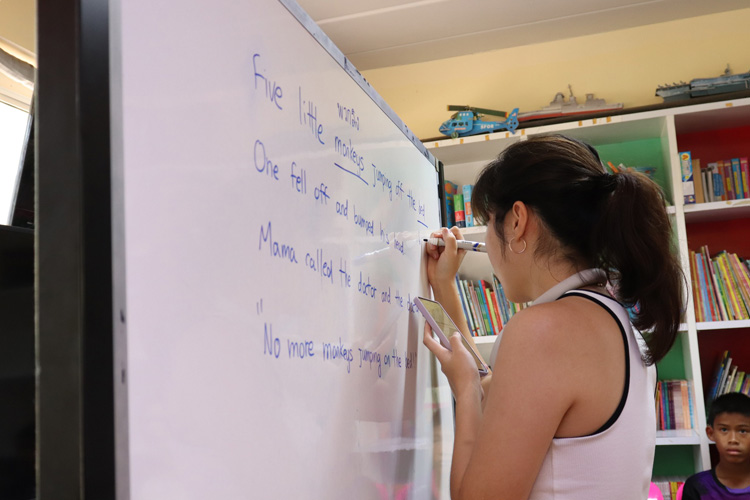 พวกลิง
Five little monkeys jumping off the bed
One fell off and bumped his head
Mama called the doctor and the
"No more monkeys jumping on the bed"